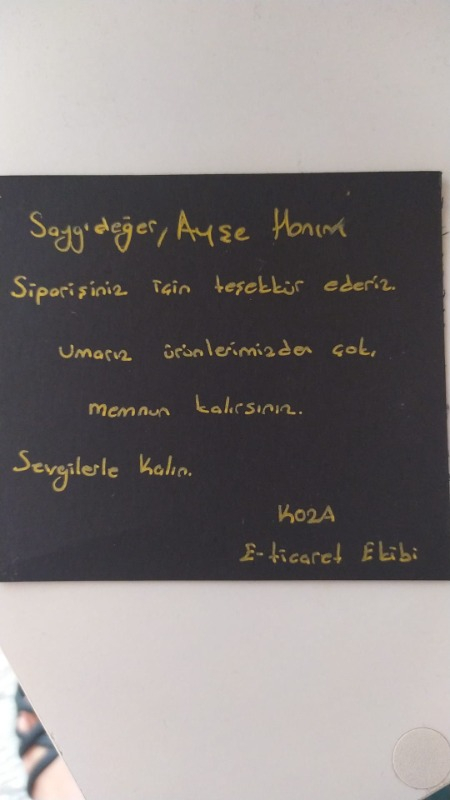 Saygıdeğer, Ayşe Hanım
Siparişiniz için teşekkür ederiz.
umarız ürünlerimizden çok,
memnun kalırsınız.
Sevgilerle Kalın.
KOZA
E-ticaret Ekibi